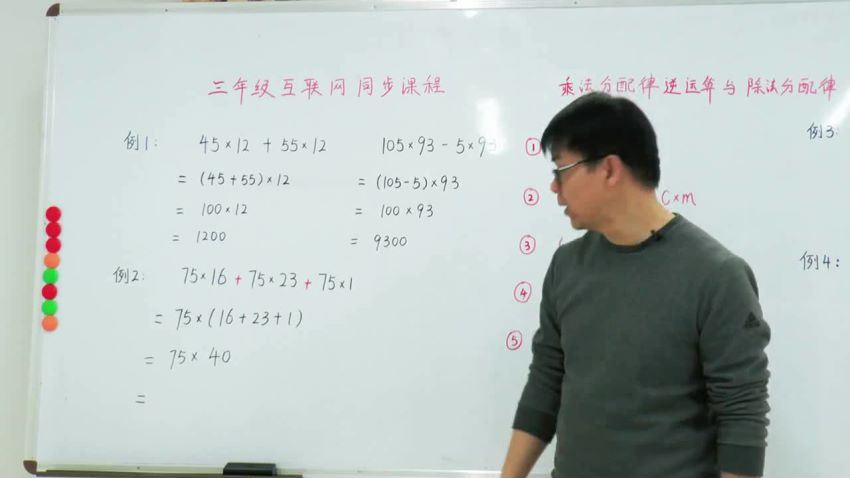 三年级互联网同步课程
乘法分配律逆运算与除法分配律
例1: 45×12 + 55×12
= (45+55)×12
= 100×12
= 1200
105×93 - 5×9
= (105-5)×93
= 100×93
= 9300
例2: 75×16 + 75×23 + 75×1
= 75×(16+23+1)
= 75×40
=
①
② C×m
③
④
⑤
例3:
例4: